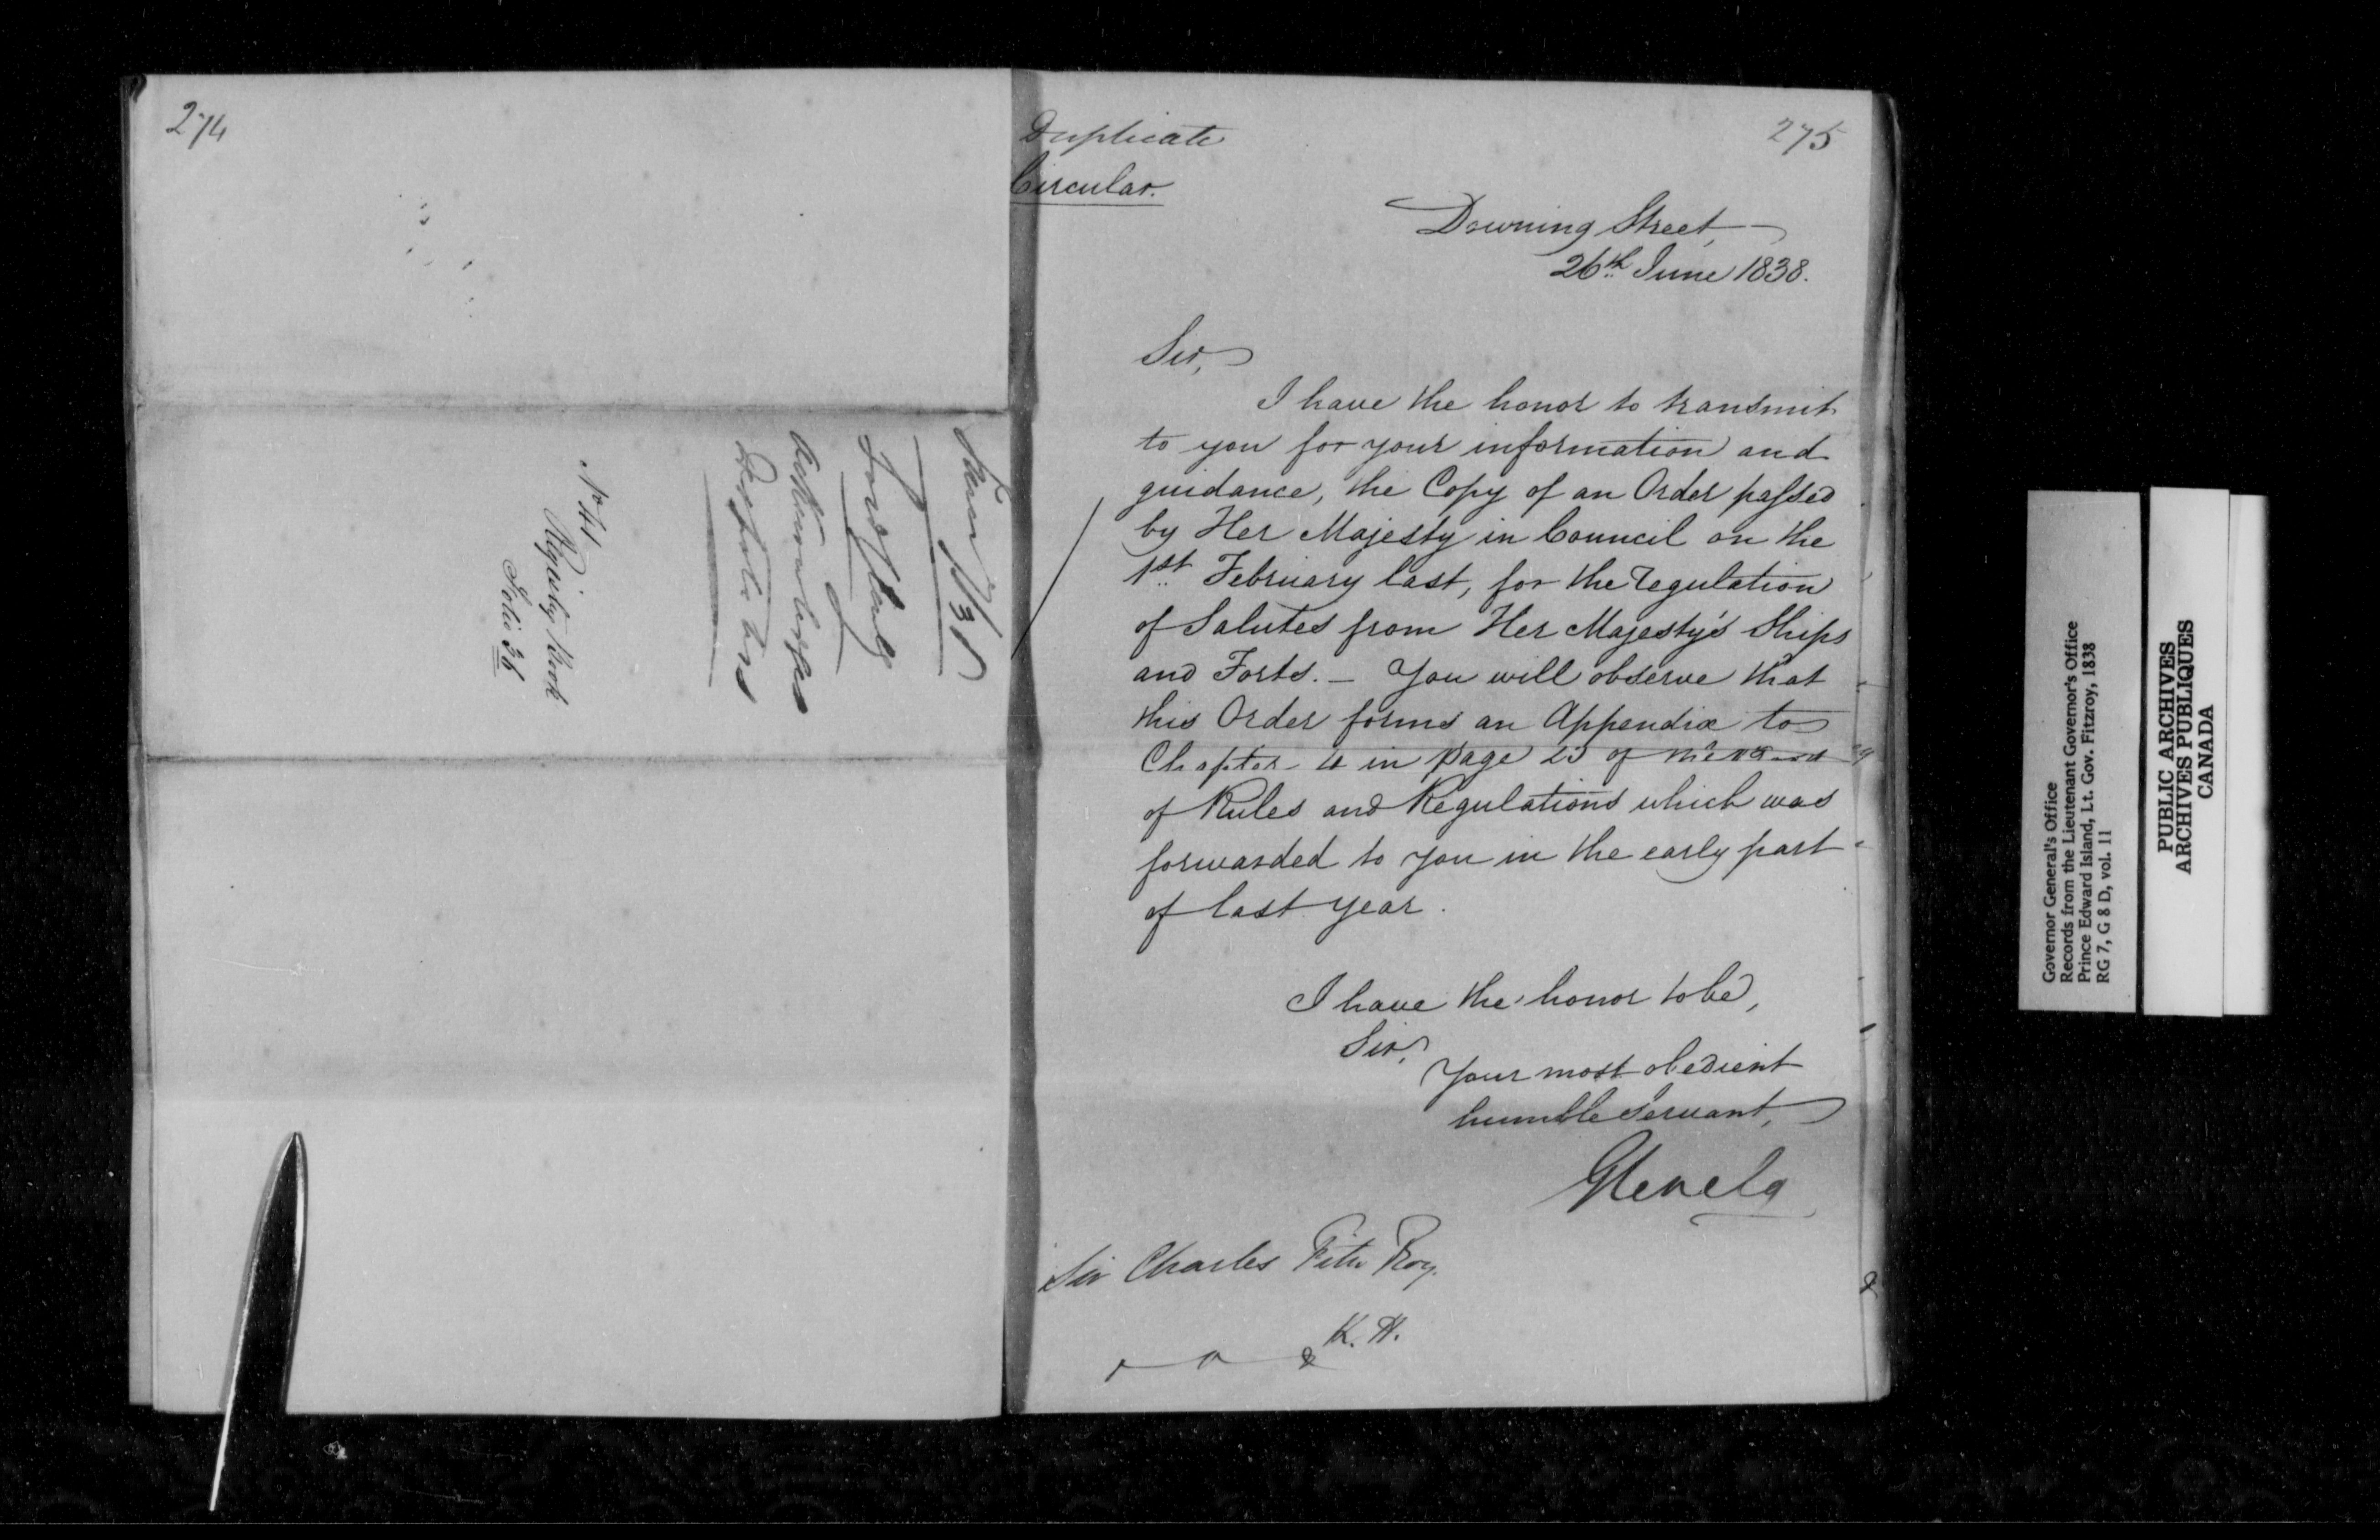 274
Lord Glenelg
Regulations
No 41
Register Book
Folio 36
275
Duplicate
Circular.
Downing Street,
26th June 1838.
Sir,
I have the honor to transmit
to you for your information and
guidance, the Copy of an Order passed
by Her Majesty in Council on the
1st February last, for the regulation
of Salutes from Her Majesty's Ships
and Forts. - You will observe that
this Order forms an Appendix to
Chapter 4 in page 23 of the
of Rules and Regulations which was
forwarded to you in the early part
of last year.
I have the honor to be,
Sir,
Your most obedient
humble servant,
Glenelg
Sir Charles Fitz Roy.
K. H.
Governor General's Office
Records from the Lieutenant Governor's Office
Prince Edward Island, Lt. Gov. Fitzroy, 1838
RG 7, G 8 D, vol. 11
PUBLIC ARCHIVES
ARCHIVES PUBLIQUES
CANADA